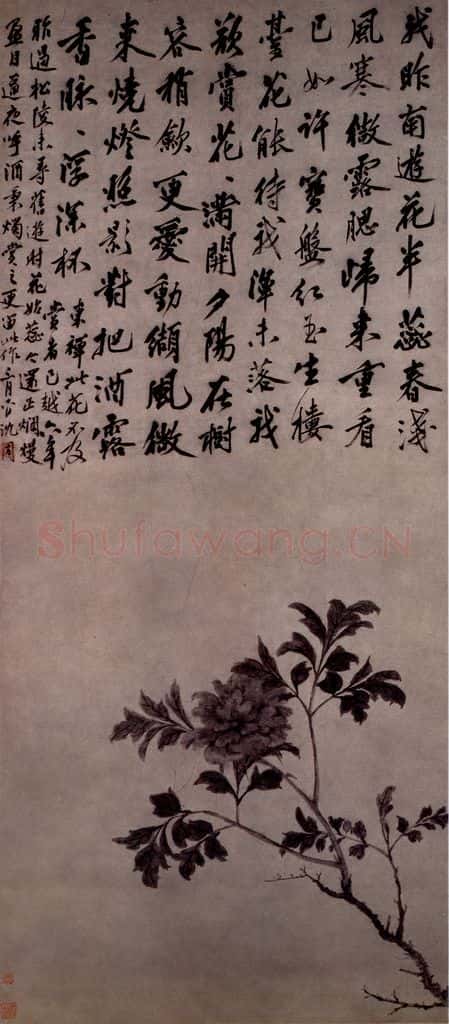 我昨南遊花半蕊春淺
風寒微露腮歸來重看
已如許寶盤紅玉生樓
臺花能待我渾未落我
欲賞花〻滿開夕陽在樹
容稍斂更愛動纈風微
來燒燈照影對把酒露
香脉〻浮深杯
東禪此花不及
賞者已越六年
昨過松陵未尋舊遊時花始蕊今還正爛熳
盈目遂夜呼酒秉燭賞之更留此作三月沈周
Shufawang.CN